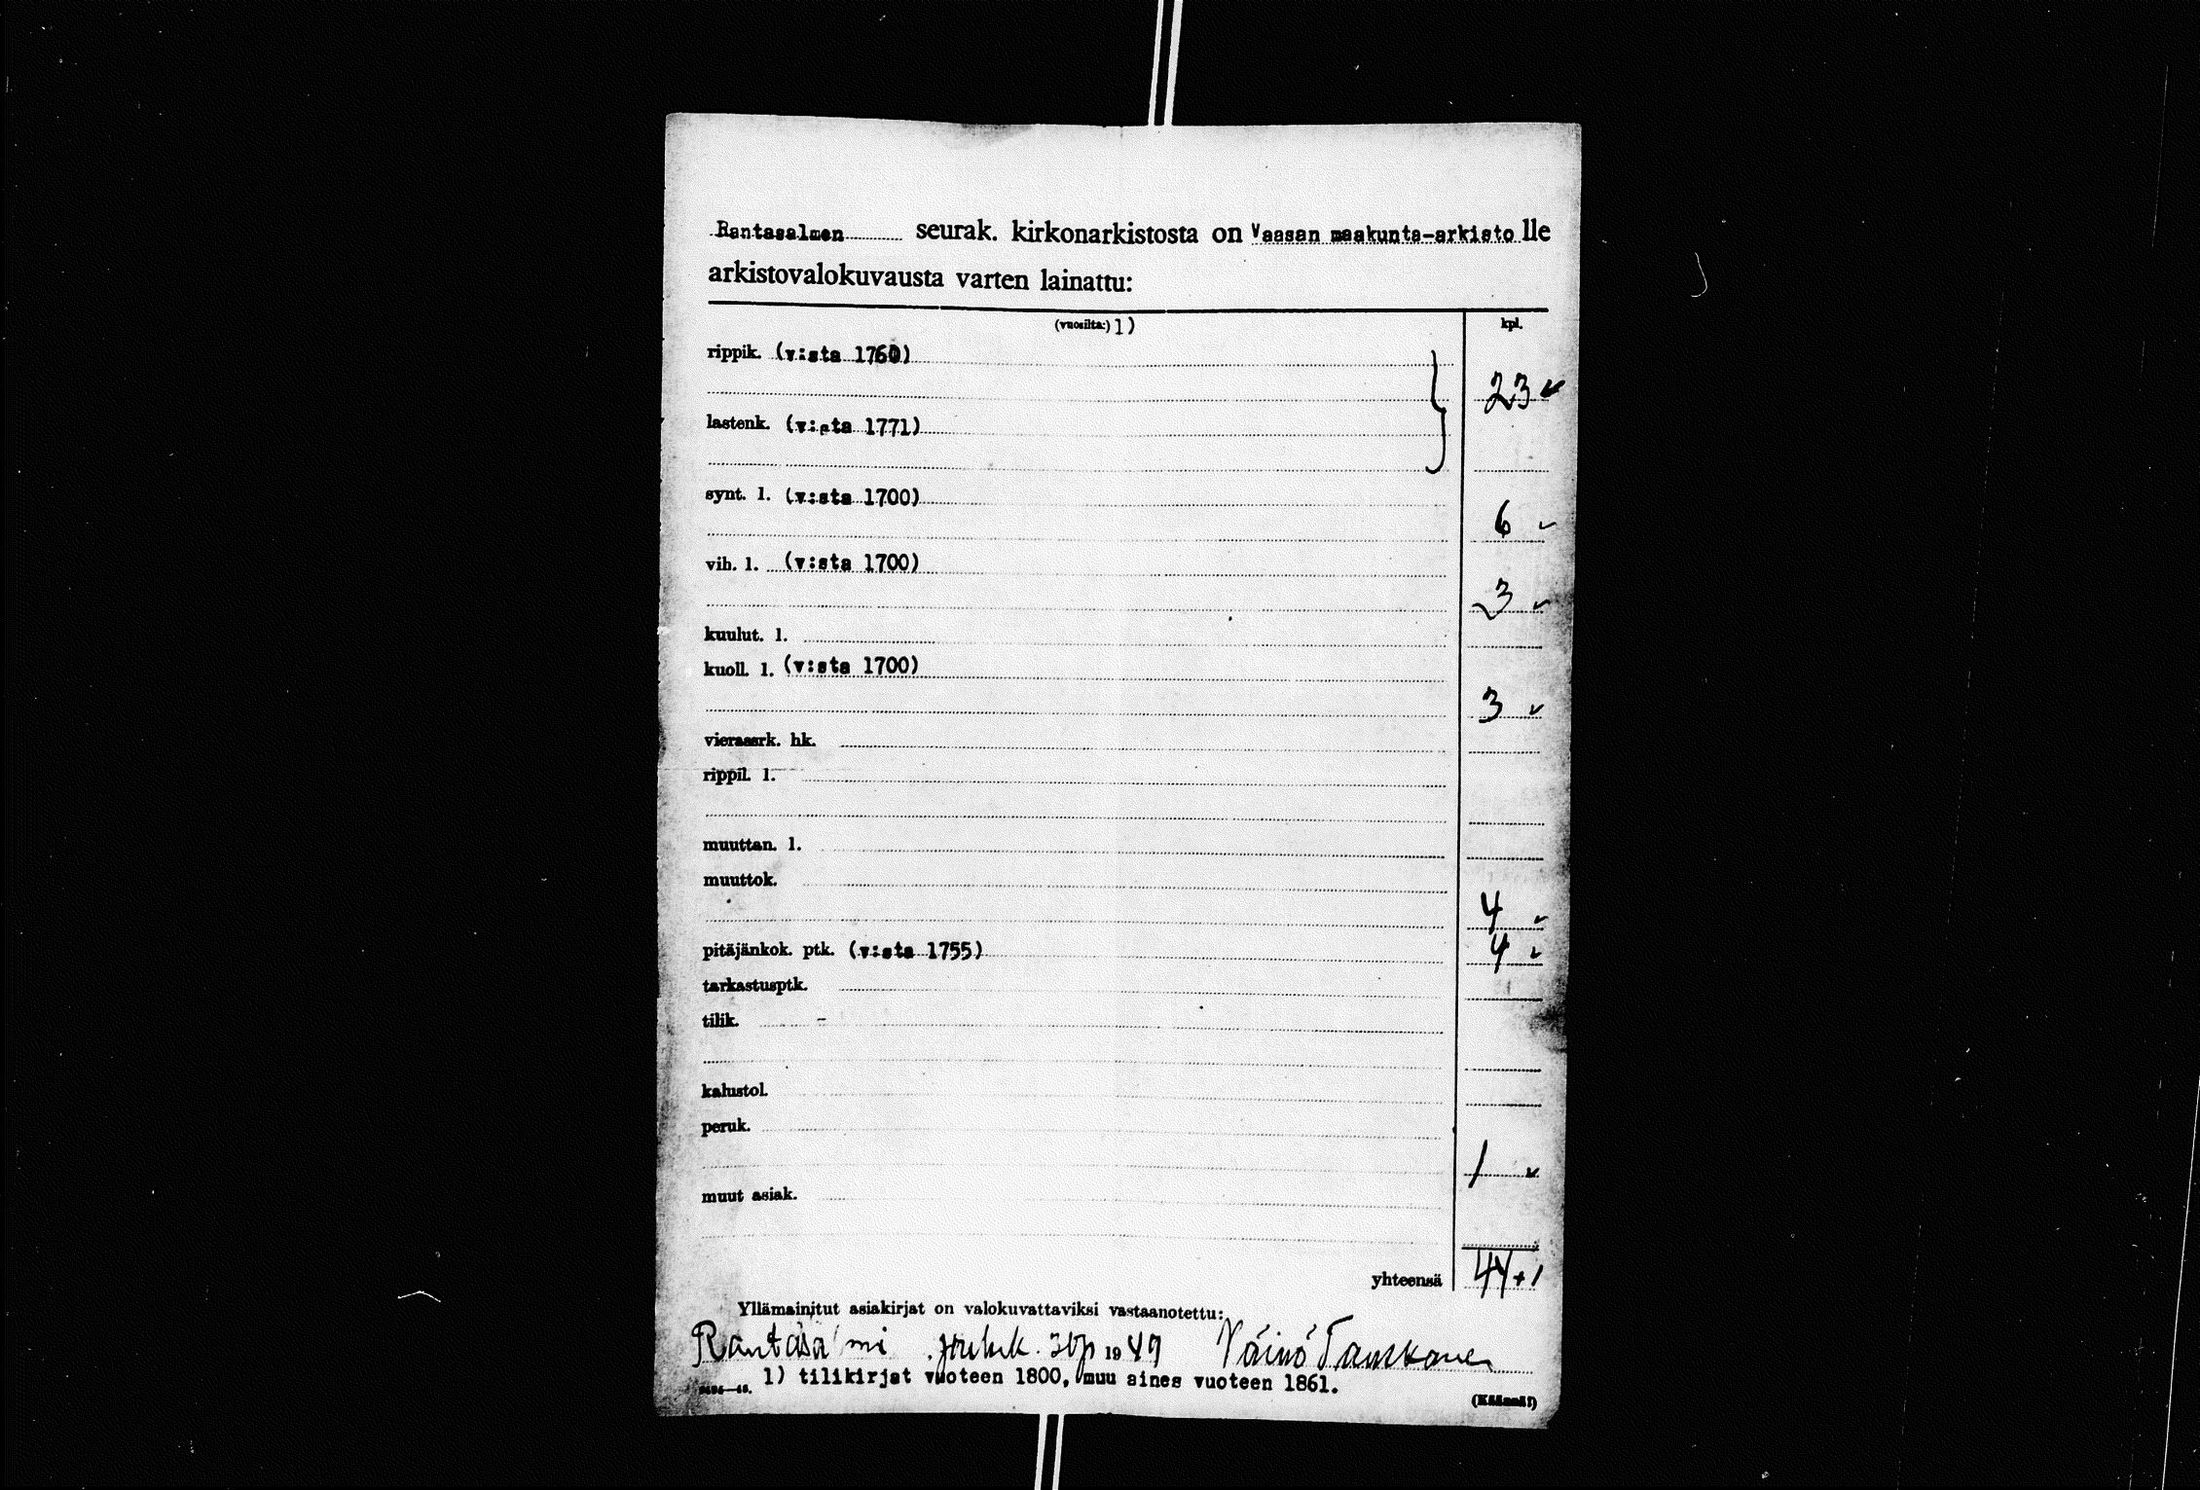 Rantasalmen seurak. kirkonarkistosta on Vaasan maakunta-arkisto lle
arkistovalokuvausta varten lainattu:
(vuosilta:) 1) kpl.
rippik. (v:sta 1760)
23
lastenk. (v:sta 1771)
synt. l. (v:sta 1700)
6
vih. l. (v:sta 1700)
3
kuulut. l.
kuoll. l. (v:sta 1700)
3
vierassrk. hk.
rippil. l.
muuttan. l.
muuttok.
4
pitäjänkok. ptk. (v:sta 1755) 4
tarkastusptk.
tilik. -
kalustol.
peruk.
1
muut asiak.
yhteensä 44+1
Yllämainitut asiakirjat on valokuvattaviksi vastaanotettu:
Rantasalmi jouluk. 30 p 1949 Väinö Tanskanen
1) tilikirjat vuoteen 1800, muu aines vuoteen 1861.
(Käännä!)